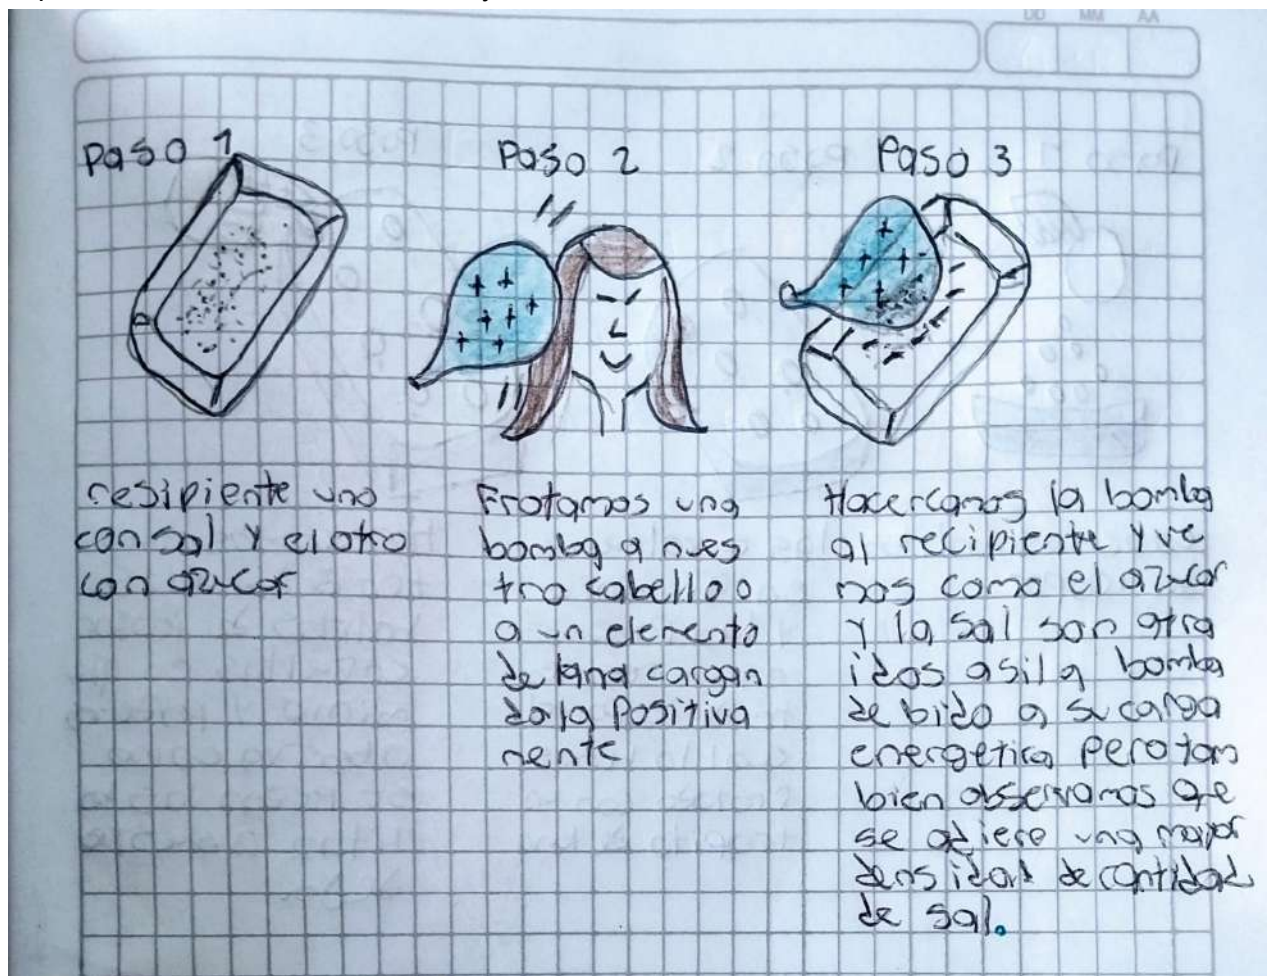 DD MM AA
Paso 1
Paso 2
Paso 3
resipiente uno
con sal y el otro
con azucar
Frotamos una
bomba a nues
tro cabello o
a un elemento
de lana cargan
dola Positiva
mente
Hacercamos la bomba
al recipiente y ve
mos como el azucar
y la sal son atra
idos asi la bomba
debido a su carga
energetica pero tam
bien observamos que
se adiere una mayor
densidad de cantidad
de sal.